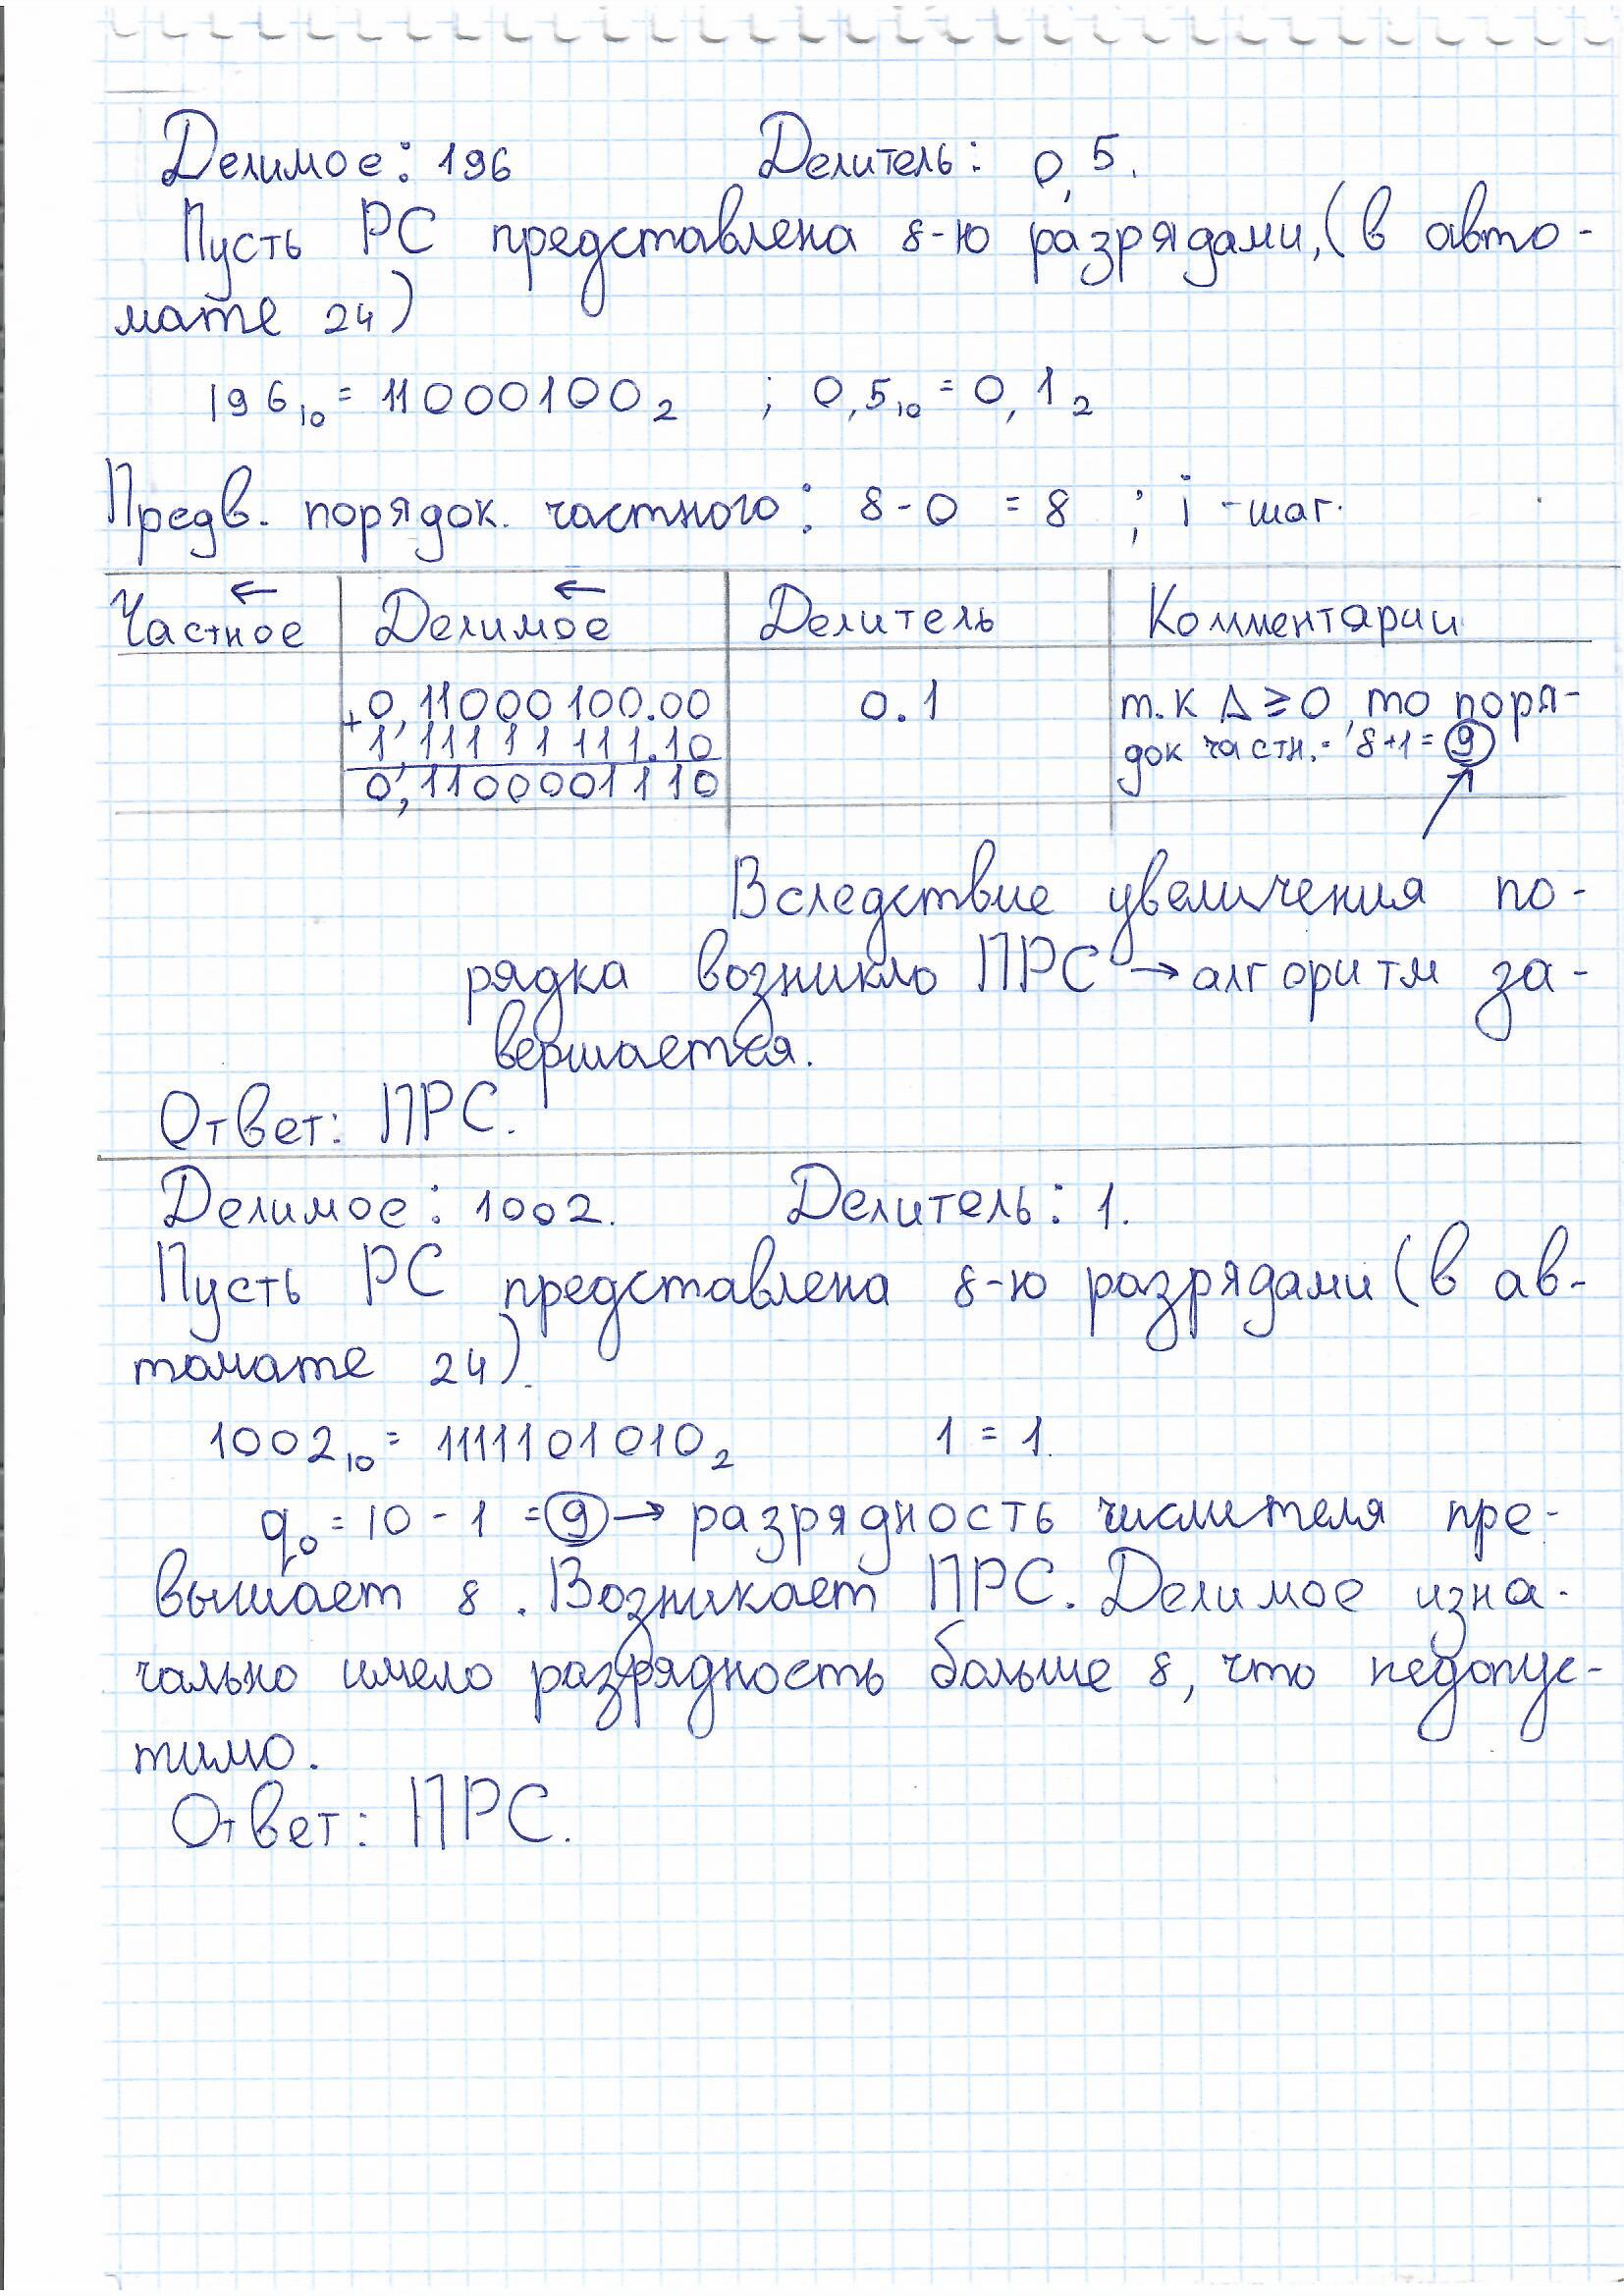 Делимое: 196 Делитель: 0,5.
Пусть РС представлена 8-ю разрядами, (в авто-
мате 24)
196₁₀ = 11000100₂ ; 0,5₁₀ = 0,1₂
Предв. порядок. частного: 8-0 = 8 ; i -шаг.
← ←
Частное Делимое Делитель Комментарии
0,11000100.00 0.1 т.к Δ ≥ 0, то поря-
+ 1,11111111.10 док частн. = 8+1 = 9
0,1100001110
Вследствие увеличения по-
рядка возникло ПРС → алгоритм за-
вершается.
Ответ: ПРС.
Делимое: 1002. Делитель: 1.
Пусть РС представлена 8-ю разрядами (в ав-
томате 24).
1002₁₀ = 1111101010₂ 1 = 1.
q₀ = 10 - 1 = 9 → разрядность числителя пре-
вышает 8. Возникает ПРС. Делимое изна-
чально имело разрядность больше 8, что недопус-
тимо.
Ответ: ПРС.